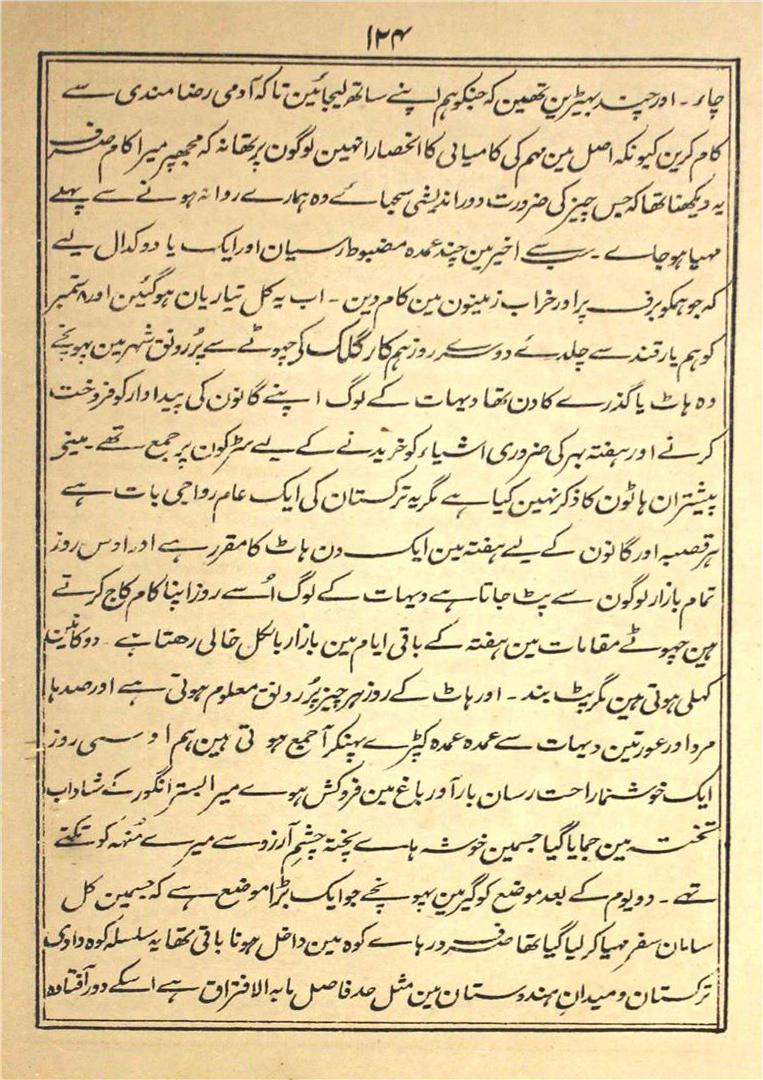 ۱۲۴
چاء ۔ اور چند بہیڑین تھین کہ جنکو ہم اپنے ساتھ لیجائین تاکہ آدمی رضامندی سے
کام کرین کیونکہ اصل مین مہم کی کامیابی کا انحصار انہین لوگون پر تھا نہ کہ مجھپر میرا کام صرف
یہ دیکھنا تھا کہ جس چیز کی ضرورت دوراندیشی سجھائے وہ ہمارے روانہ ہونے سے پہلے
مہیا ہو جاے ۔ سب سے اخیر مین چند عمدہ مضبوط رسیان اور ایک یا دو کدال لیے
کہ جو ہمکو برف پر اور خراب زمینون مین کام دین ۔ اب یہ کل تیاریان ہو گئین اور ۸ ستمبر
کو ہم یارقند سے چلدئے دوسرے روز ہم کارگلک کی چھوٹے سے پُر رونق شہر مین پہونچے
وہ ہاٹ یا گذرے کا دن تھا دیہات کے لوگ اپنے گانون کی پیداوار کو فروخت
کرنے اور ہفتہ بہر کی ضروری اشیاء کو خریدنے کے لیے سڑکون پر جمع تھے ۔ مینے
پیشتر ان ہاٹون کا ذکر نہین کیا ہے مگر یہ ترکستان کی ایک عام رواجی بات ہے
ہر قصبہ اور گانون کے لیے ہفتہ مین ایک دن ہاٹ کا مقرر ہے اور اوس روز
تمام بازار لوگون سے پٹ جاتا ہے دیہات کے لوگ اُسے روز اپنا کام کاج کرتے
ہین چھوٹے مقامات مین ہفتہ کے باقی ایام مین بازار بالکل خالی رہتا ہے ۔ دوکانین
کہلی ہوتی ہین مگر پٹ بند ۔ اور ہاٹ کے روز ہر چیز پُر رونق معلوم ہوتی ہے اور صدہا
مرد اور عورتین دیہات سے عمدہ عمدہ کپڑے پہنکر آ جمع ہوتی ہین ہم اوسی روز
ایک خوشنما راحت رسان بارآور باغ مین فروکش ہوے میرا بستر انگور کے شاداب
تختہ مین جمایا گیا جسمین خوشہ ہاے پختہ چشم آرزو سے میرے مُنہہ کو تکتے
تھے ۔ دو یوم کے بعد موضع کوگیر مین پہونچے جو ایک بڑا موضع ہے کہ جسمین کل
سامان سفر مہیا کر لیا گیا تھا صرف درہاے کوہ مین داخل ہونا باقی تھا یہ سلسلہ کوہ وادی
ترکستان و میدان ہندوستان مین مثل حد فاصل مابہ الافتراق ہے اسکے دور آفتادہ